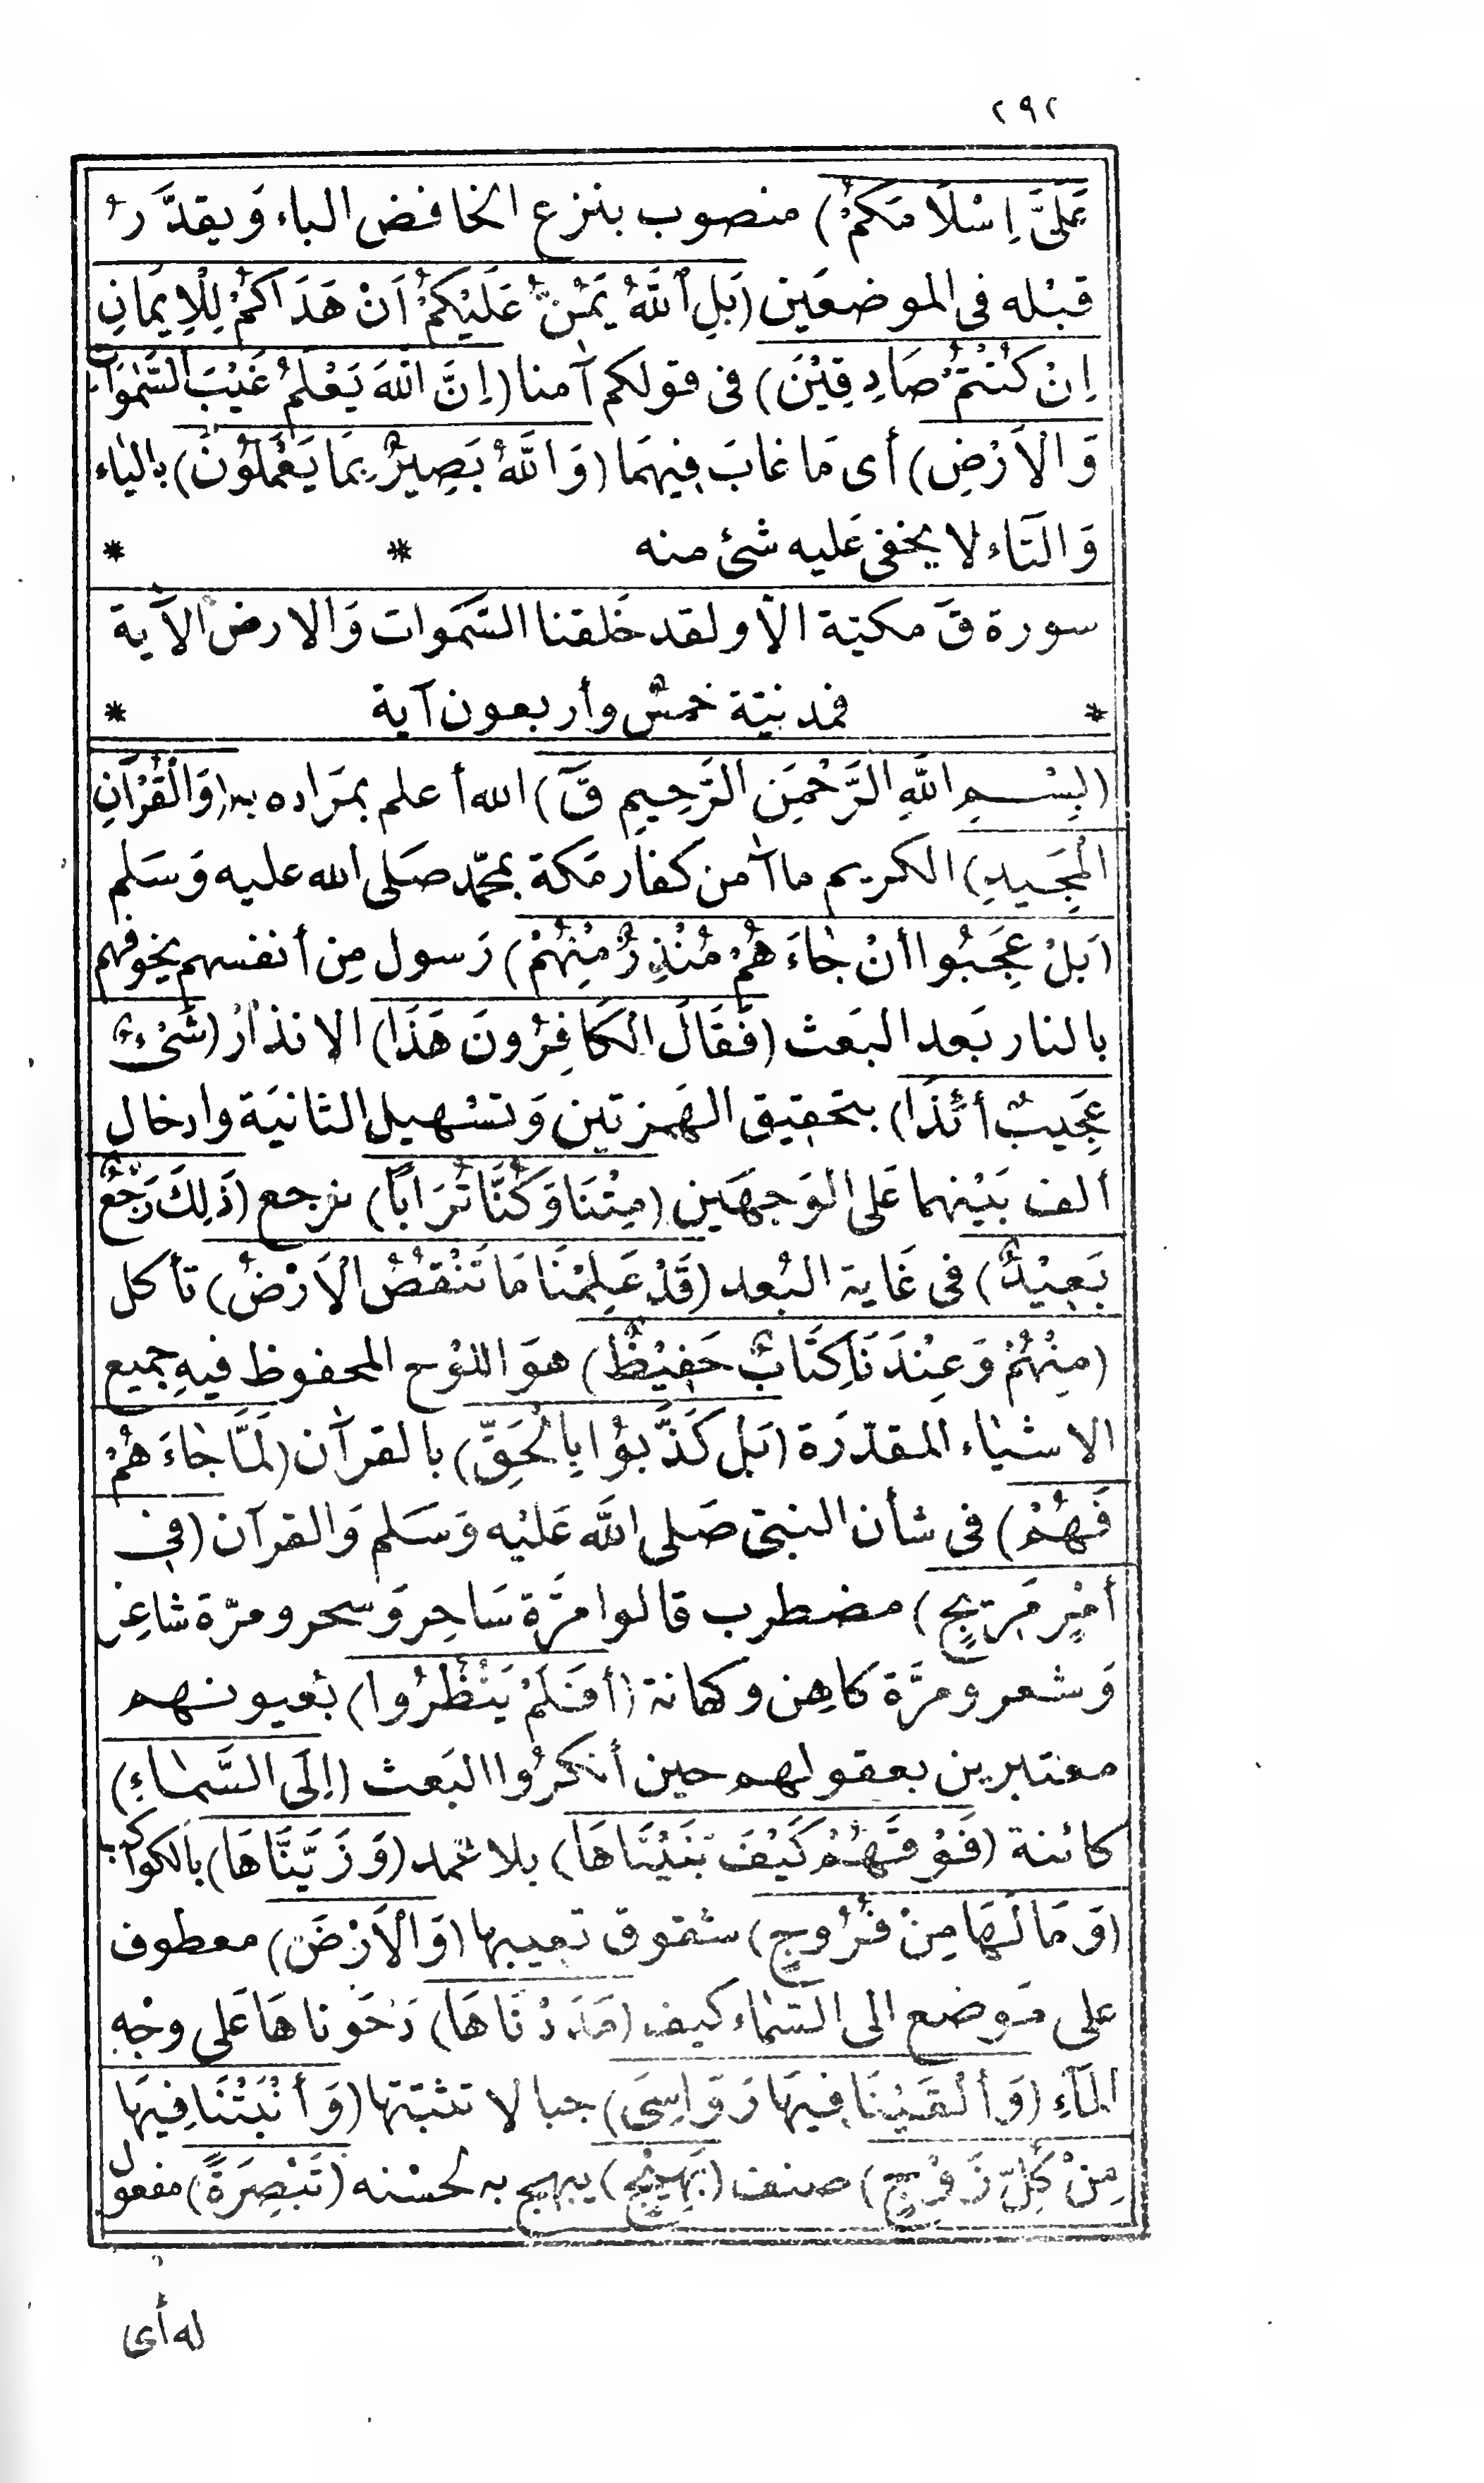 ٢٩٢
عَلَيَّ إِسْلَامَكُمْ) منصوب بنزع الخافض الباء وَيقدَّرُ
قبْله في الموضعَين (بَلِ ٱللَّهُ يَمُنُّ عَلَيْكُمْ أَنْ هَدَاكُمْ لِلْإِيمَانِ
إِنْ كُنْتُمْ صَادِقِيْنَ) في قولكم آمنا (إِنَّ اللّٰهَ يَعْلَمُ غَيْبَ السَّمٰوَاتِ
وَالْأَرْضِ) أى مَا غابَ فِيهمَا (وَاللَّهُ بَصِيرٌ بِمَا يَعْمَلُوُنَ) بالياء
وَالتَاء لا يخفى عَليه شئ منه * *
سورة قَ مكيّة الّا ولقد خَلقنا السَّمَوات وَالارض الآية
* فمدنيّة خمسٌ وأربعون آية *
(بِسْمِ اللَّهِ الرَّحْمَنِ الرَّحِيمِ قَ) الله أعلم بمرَاده به (وَالْقُرْآنِ
الْمَجِيدِ) الكريم ما آمن كفار مَكة بمحمّد صَلى الله عليه وَسَلم
(بَلْ عَجِبُوا أَنْ جَاءَهُمْ مُنْذِرٌ مِنْهُمْ) رَسول مِن أنفسهم يخوفهم
بالنار بَعد البَعث (فَقَالَ الْكَافِرُونَ هَذَا) الانذارُ (شَيْءٌ
عَجِيبٌ أَئِذَا) بتحقيق الهَمزتين وَتسْهيل الثانيَة وادخال
ألف بَيْنهما عَلى الوَجهَين (مِتْنَا وَكُنَّا تُرَاباً) نرجع (ذَلِكَ رَجْعٌ
بَعِيْدٌ) في غَاية البُعد (قَدْ عَلِمْنَا مَا تَنْقُصُ الْأَرْضُ) تأكل
(مِنْهُمْ وَعِنْدَنَا كِتَابٌ حَفِيْظٌ) هوَ اللوْح المحفوظ فيهِ جميع
الاشيَاء المقدّرَة (بَلْ كَذَّبُوْا بِالْحَقِّ) بالقرآن (لَمَّا جَاءَهُمْ
فَهُمْ) في شأن النبيّ صَلى اللَّه عَليْه وَسَلم وَالقرآن (فِي
أَمْرٍ مَرِيجٍ) مضطرب قالوا مرَّة سَاحِر وَسحر ومرّة شاعِر
وَشعر ومرَّة كاهِن وكهانة (أَفَلَمْ يَنْظُرُوا) بعُيونهم
معتبرين بعقولهم حين أنكرُوا البَعث (إِلَى السَّمَاءِ)
كائنة (فَوْقَهُمْ كَيْفَ بَنَيْنَاهَا) بلا عَمد (وَزَيَّنَّاهَا) بالكواكب
(وَمَا لَهَا مِنْ فُرُوجٍ) شقوق تعيبها (وَالْأَرْضَ) معطوف
على مَوضع الى السّمَاء كيف (مَدَدْنَاهَا) دَحَوناهَا عَلى وجْهِ
الماءِ (وَأَلْقَيْنَا فِيهَا رَوَاسِيَ) جبالا تثبتها (وَأَنْبَتْنَا فِيهَا
مِنْ كُلِّ زَوْجٍ) صنف (بَهِيْجٍ) يبهج به لحسْنه (تَبْصِرَةً) مفعول
له أى